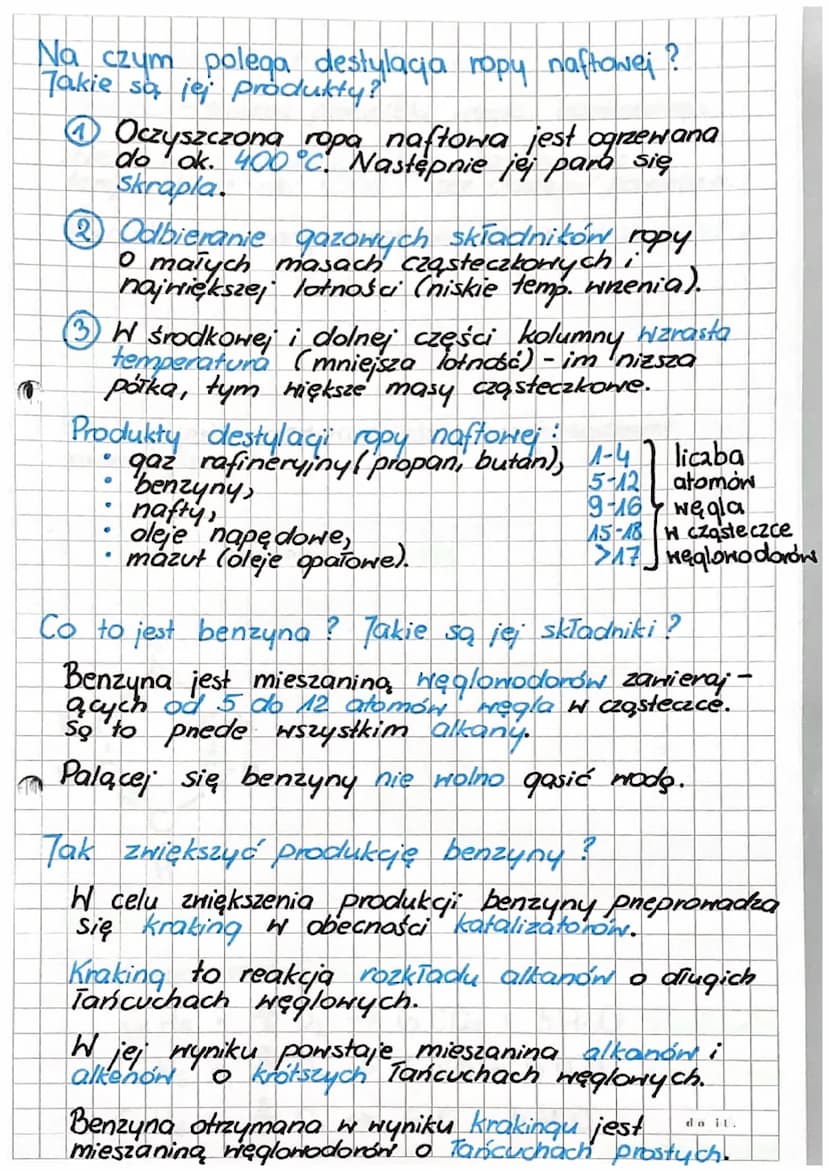 Na czym polega destylacja ropy naftowej?
Jakie są jej produkty?
1 Oczyszczona ropa naftowa jest ogrzewana
do ok. 400 °C. Następnie jej para się
skrapla.
2 Odbieranie gazowych składników ropy
o małych masach cząsteczkowych i
największej lotności (niskie temp. wrzenia).
3 W środkowej i dolnej części kolumny wzrasta
temperatura (mniejsza lotność) - im niższa
półka, tym większe masy cząsteczkowe.
Produkty destylacji ropy naftowej:
• gaz rafineryjny (propan, butan), 1-4 liczba
• benzyny, 5-12 atomów
• nafty, 9-16 węgla
• oleje napędowe, 15-18 w cząsteczce
• mazut (oleje opałowe). >17 węglowodorów
Co to jest benzyna? Jakie są jej składniki?
Benzyna jest mieszaniną węglowodorów zawieraj-
ących od 5 do 12 atomów węgla w cząsteczce.
Są to przede wszystkim alkany.
Palącej się benzyny nie wolno gasić wodą.
Jak zwiększyć produkcję benzyny?
W celu zwiększenia produkcji benzyny przeprowadza
się kraking w obecności katalizatorów.
Kraking to reakcja rozkładu alkanów o długich
łańcuchach węglowych.
W jej wyniku powstaje mieszanina alkanów i
alkenów o krótszych łańcuchach węglowych.
Benzyna otrzymana w wyniku krakingu jest do it.
mieszaniną węglowodorów o łańcuchach prostych.